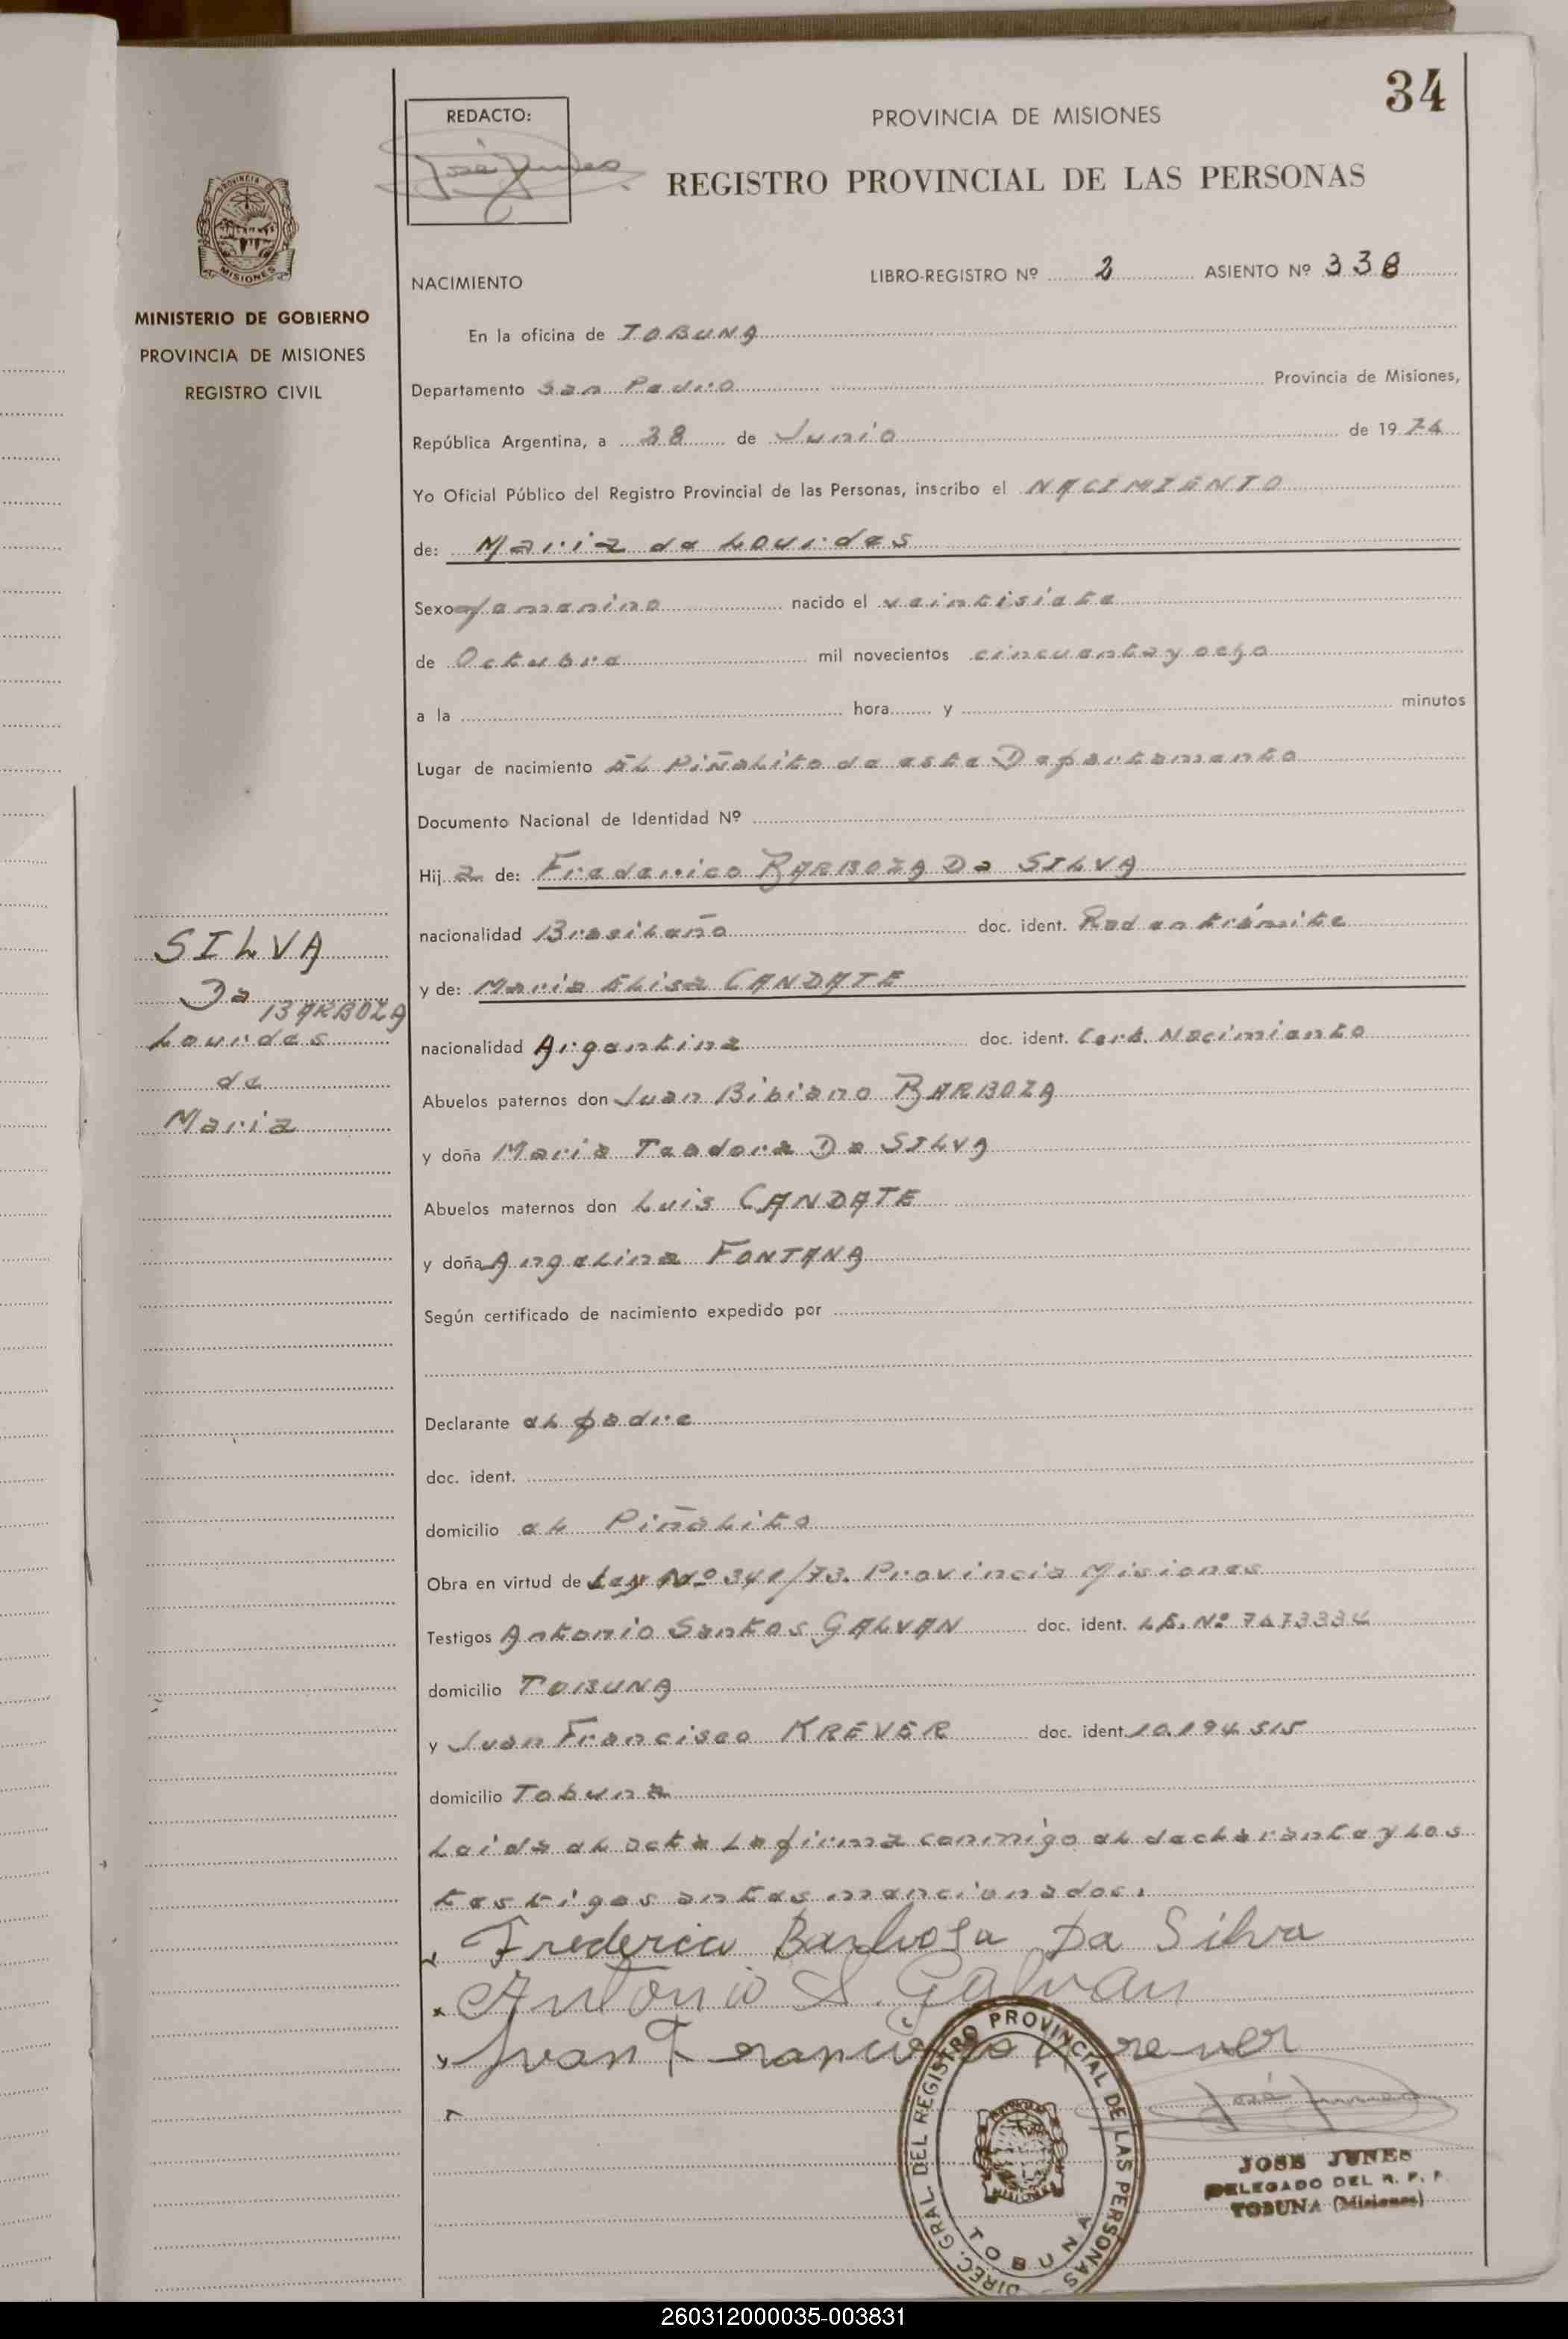 34
REDACTO:
PROVINCIA DE MISIONES
REGISTRO PROVINCIAL DE LAS PERSONAS
PROVINCIA DE MISIONES
MINISTERIO DE GOBIERNO
PROVINCIA DE MISIONES
REGISTRO CIVIL
SILVA
Da BARBOZA
Lourdes
de
Maria
NACIMIENTO LIBRO-REGISTRO Nº 2 ASIENTO Nº 338
En la oficina de TOBUNA
Departamento San Pedro Provincia de Misiones,
República Argentina, a 28 de Junio de 1974
Yo Oficial Público del Registro Provincial de las Personas, inscribo el NACIMIENTO
de: Maria de Lourdes
Sexo femenino nacido el veintisiete
de Octubre mil novecientos cincuenta y ocho
a la hora y minutos
Lugar de nacimiento EL Piñalito de este Departamento
Documento Nacional de Identidad Nº
Hija de: Frederico BARBOZA Da SILVA
nacionalidad Brasileño doc. ident. Rad en trámite
y de: Maria Elisa CANDATE
nacionalidad Argentina doc. ident. Cert. Nacimiento
Abuelos paternos don Juan Bibiano BARBOZA
y doña Maria Teodora Da SILVA
Abuelos maternos don Luis CANDATE
y doña Angelina FONTANA
Según certificado de nacimiento expedido por
Declarante el padre
doc. ident.
domicilio el Piñalito
Obra en virtud de Ley Nº 341/73. Provincia Misiones
Testigos Antonio Santos GALVAN doc. ident. L.E. Nº 7473334
domicilio TOBUNA
y Juan Francisco KREVER doc. ident. 10.194.515
domicilio Tobuna
Leida el acta la firma conmigo el declarante y los
testigos antes mencionados.
Frederico Barbosa Da Silva
Antonio S. Galvan
Juan Francisco Krever
DIREC. GRAL. DEL REGISTRO PROVINCIAL DE LAS PERSONAS
MISIONES
TOBUNA
José Junes
JOSE JUNES
DELEGADO DEL R. P. P.
TOBUNA (Misiones)
260312000035-003831